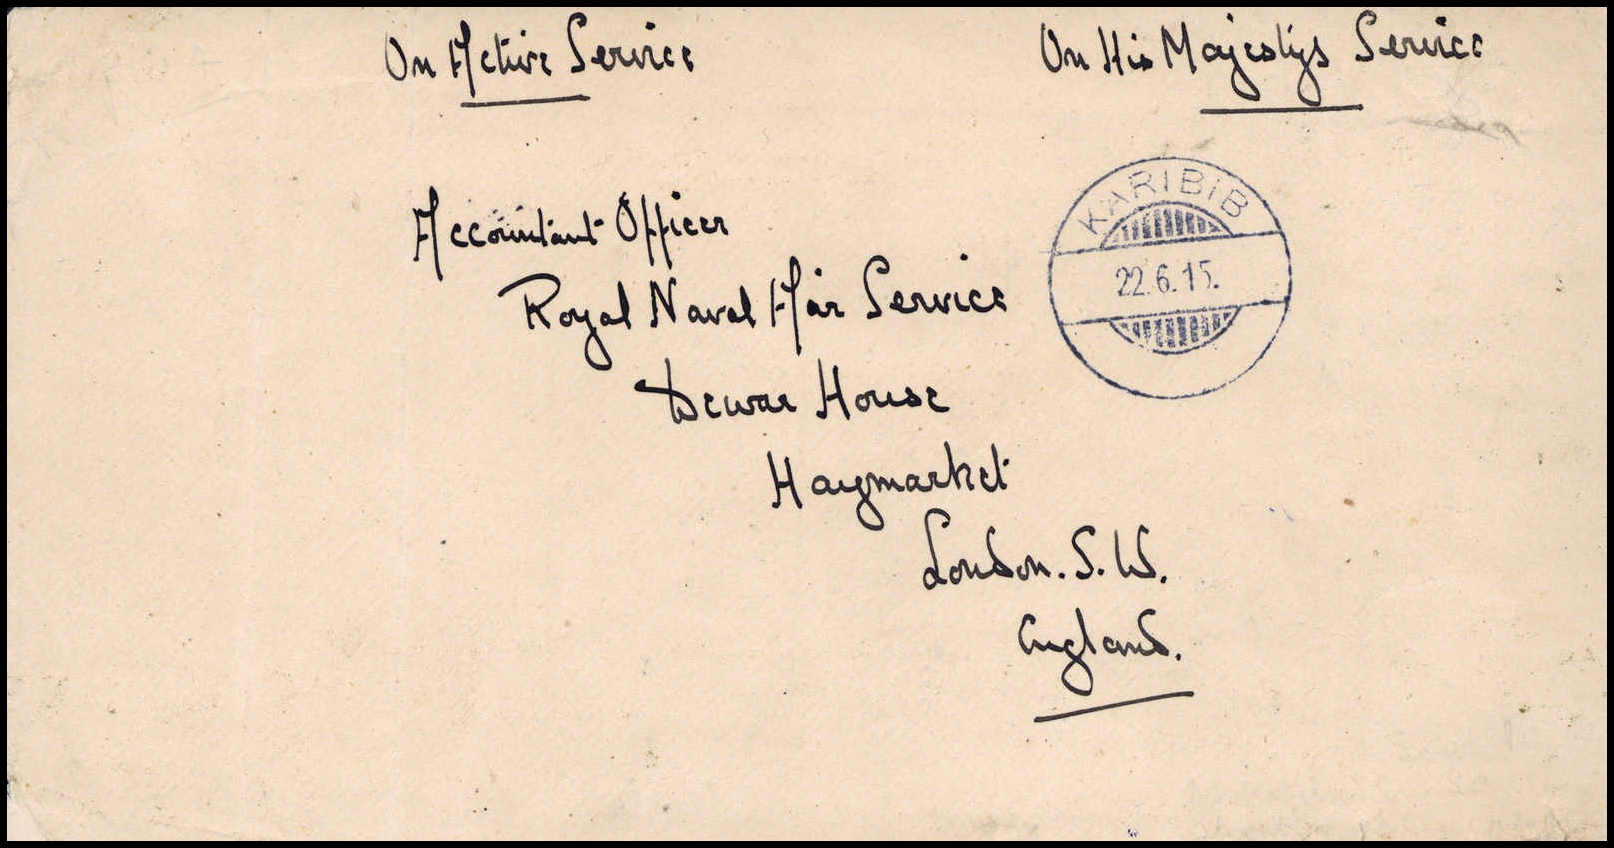 On Active Service
On His Majestys Service
KARIBIB
22.6.15.
Accountant Officer
Royal Naval Air Service
Dewar House
Haymarket
London. S. W.
England.